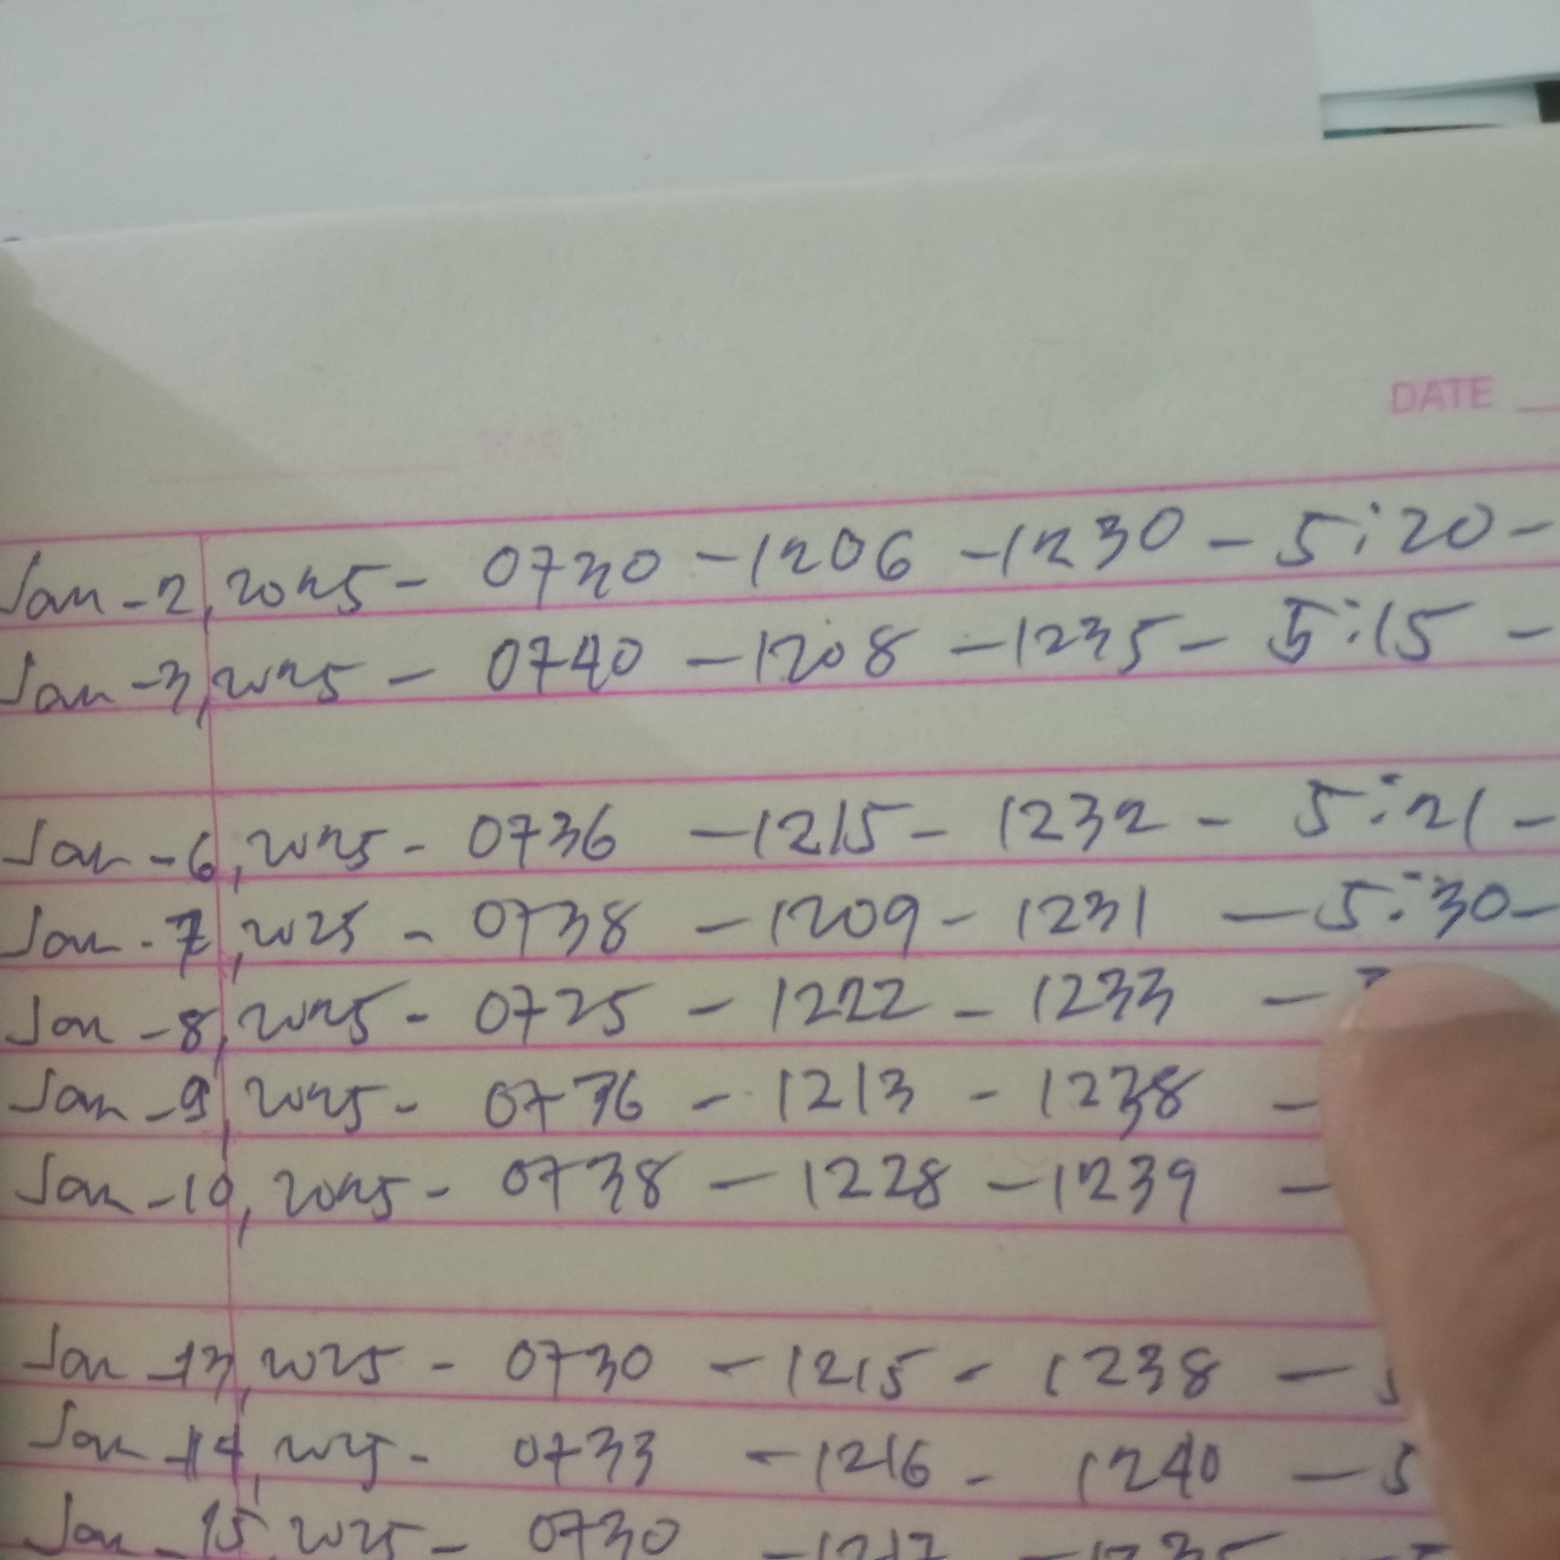 DATE
Jan-2, 2025 - 0730 - 1206 - 1230 - 5:20 -
Jan-3, 2025 - 0740 - 1208 - 1235 - 5:15 -
Jan-6, 2025 - 0736 - 1215 - 1232 - 5:21 -
Jan-7, 2025 - 0738 - 1209 - 1231 - 5:30 -
Jan-8, 2025 - 0725 - 1222 - 1233 -
Jan-9, 2025 - 0736 - 1213 - 1238 -
Jan-10, 2025 - 0738 - 1228 - 1239 -
Jan-13, 2025 - 0730 - 1215 - 1238 -
Jan-14, 2025 - 0733 - 1216 - 1240 - 5
Jan-15, 2025 - 0730 - 1217 - 1235 -